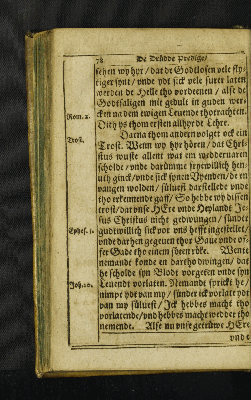 78 De Drüdde Predige/
sehen wy hyr / dat de Godtlosen vele fly-
tiger synt / vnde ydt sick vele surer laten
werden de Helle tho vordenen / alse de
Godtsaligen mit gedult in guden wer-
cken na dem ewigen Leuende thotrachten.
Dith ys thom ersten allhyr de Lehre.
Rom. 2.
Darna thom andern volget ock ein
Trost.
Trost. Wenn wy hyr hören / dat Chri-
stus wuste allent wat em wedderuaren
scholde / vnde darümme frywillich hen-
uth ginck / vnde sick synen Vyenden / de en
vangen wolden / süluest darstellede vnde
tho erkennende gaff / So hebbe wy düssen
trost / dat vnse HEre vnde Heylandt Je-
sus Christus nicht gedwungen / sünder
gudtwillich sick vor vns hefft ingestellet /
Ephes. 5.
vnde darhen gegeuen thor Gaue vnde of-
fer Gade tho einem söten röke. Wente
nemande konde en dartho dwingen / dat
he scholde syn Blodt vorgeten vnde syn
Leuendt vorlaten. Nemandt sprickt he /
Joh. 10.
nimpt ydt van my / sünder ick vorlate ydt
van my süluest / Ick hebbe macht tho
vorlatende / vnd hebbe macht wedder tho
nemende. Alse nu vnse getrüwe HEre
vnd